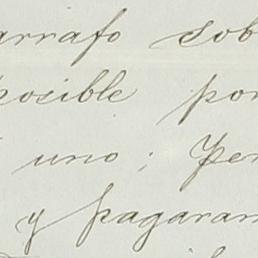 arrafo sob
posible por
uno; Per
y pagaran